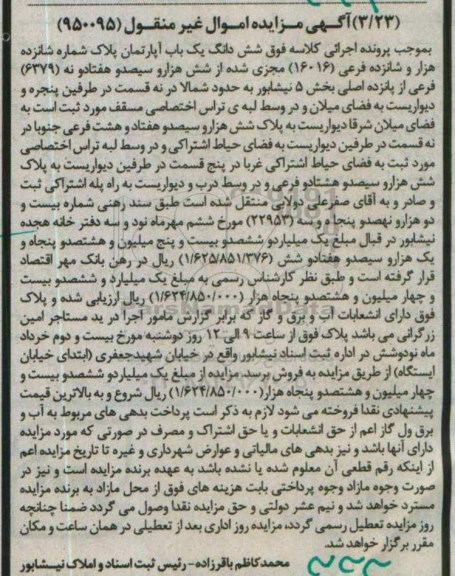 (۳/۲۳) آگهی مزایده اموال غیر منقول (۹۵۰۰۹۵)
بموجب پرونده اجرائی کلاسه فوق شش دانگ یک باب آپارتمان پلاک شماره شانزده
هزار و شانزده فرعی (۱۶۰۱۶) مجزی شده از شش هزارو سیصدو هفتادو نه (۶۳۷۹)
فرعی از پانزده اصلی بخش ۵ نیشابور به حدود شمالا در نه قسمت در طرفین پنجره و
دیواریست به فضای میلان و در وسط لبه ی تراس اختصاصی مسقف مورد ثبت است به
فضای میلان شرقا دیواریست به پلاک شش هزارو سیصدو هفتاد و هشت فرعی جنوبا در
نه قسمت در طرفین دیواریست به فضای حیاط اشتراکی و در وسط لبه تراس اختصاصی
مورد ثبت به فضای حیاط اشتراکی غربا در پنج قسمت در طرفین دیواریست به پلاک
شش هزارو سیصدو هشتادو فرعی و در وسط درب و دیواریست به راه پله اشتراکی ثبت
و صادر و به آقای صفرعلی دولابی منتقل شده است طبق سند رهنی شماره بیست و
دو هزارو نهصدو پنجاه و سه (۲۲۹۵۳) مورخ ششم مهرماه نود و سه دفتر خانه هجده
نیشابور در قبال مبلغ یک میلیاردو ششصدو بیست و پنج میلیون و هشتصدو پنجاه و
یک هزارو سیصدو هفتادو شش (۱/۶۲۵/۸۵۱/۳۷۶) ریال در رهن بانک مهر اقتصاد
قرار گرفته است و طبق نظر کارشناس رسمی به مبلغ یک میلیارد و ششصدو بیست
و چهار میلیون و هشتصدو پنجاه هزار (۱/۶۲۴/۸۵۰/۰۰۰) ریال ارزیابی شده و پلاک
فوق دارای انشعابات آب و برق و گاز که برابر گزارش مامور اجرا در ید مستاجر امین
زرگرانی می باشد پلاک فوق از ساعت ۹ الی ۱۲ روز دوشنبه مورخ بیست و دوم خرداد
ماه نودوشش در اداره ثبت اسناد نیشابور واقع در خیابان شهیدجعفری (ابتدای خیابان
ایستگاه) از طریق مزایده به فروش برسد. مزایده از مبلغ یک میلیاردو ششصدو بیست و
چهار میلیون و هشتصدو پنجاه هزار (۱/۶۲۴/۸۵۰/۰۰۰) ریال شروع و به بالاترین قیمت
پیشنهادی نقدا فروخته می شود لازم به ذکر است پرداخت بدهی های مربوط به آب و
برق ول گاز اعم از حق انشعابات و یا حق اشتراک و مصرف در صورتی که مورد مزایده
دارای آنها باشد و نیز بدهی های مالیاتی و عوارض شهرداری و غیره تا تاریخ مزایده اعم
از اینکه رقم قطعی آن معلوم شده یا نشده باشد به عهده برنده مزایده است و نیز در
صورت وجوه مازاد وجوه پرداختی بابت هزینه های فوق از محل مازاد به برنده مزایده
مسترد خواهد شد و نیم عشر دولتی و حق مزایده نقدا وصول می گردد ضمنا چنانچه
روز مزایده تعطیل رسمی گردد، مزایده روز اداری بعد از تعطیلی در همان ساعت و مکان
مقرر برگزار خواهد شد.
محمدکاظم باقرزاده - رئیس ثبت اسناد و املاک نیشابور